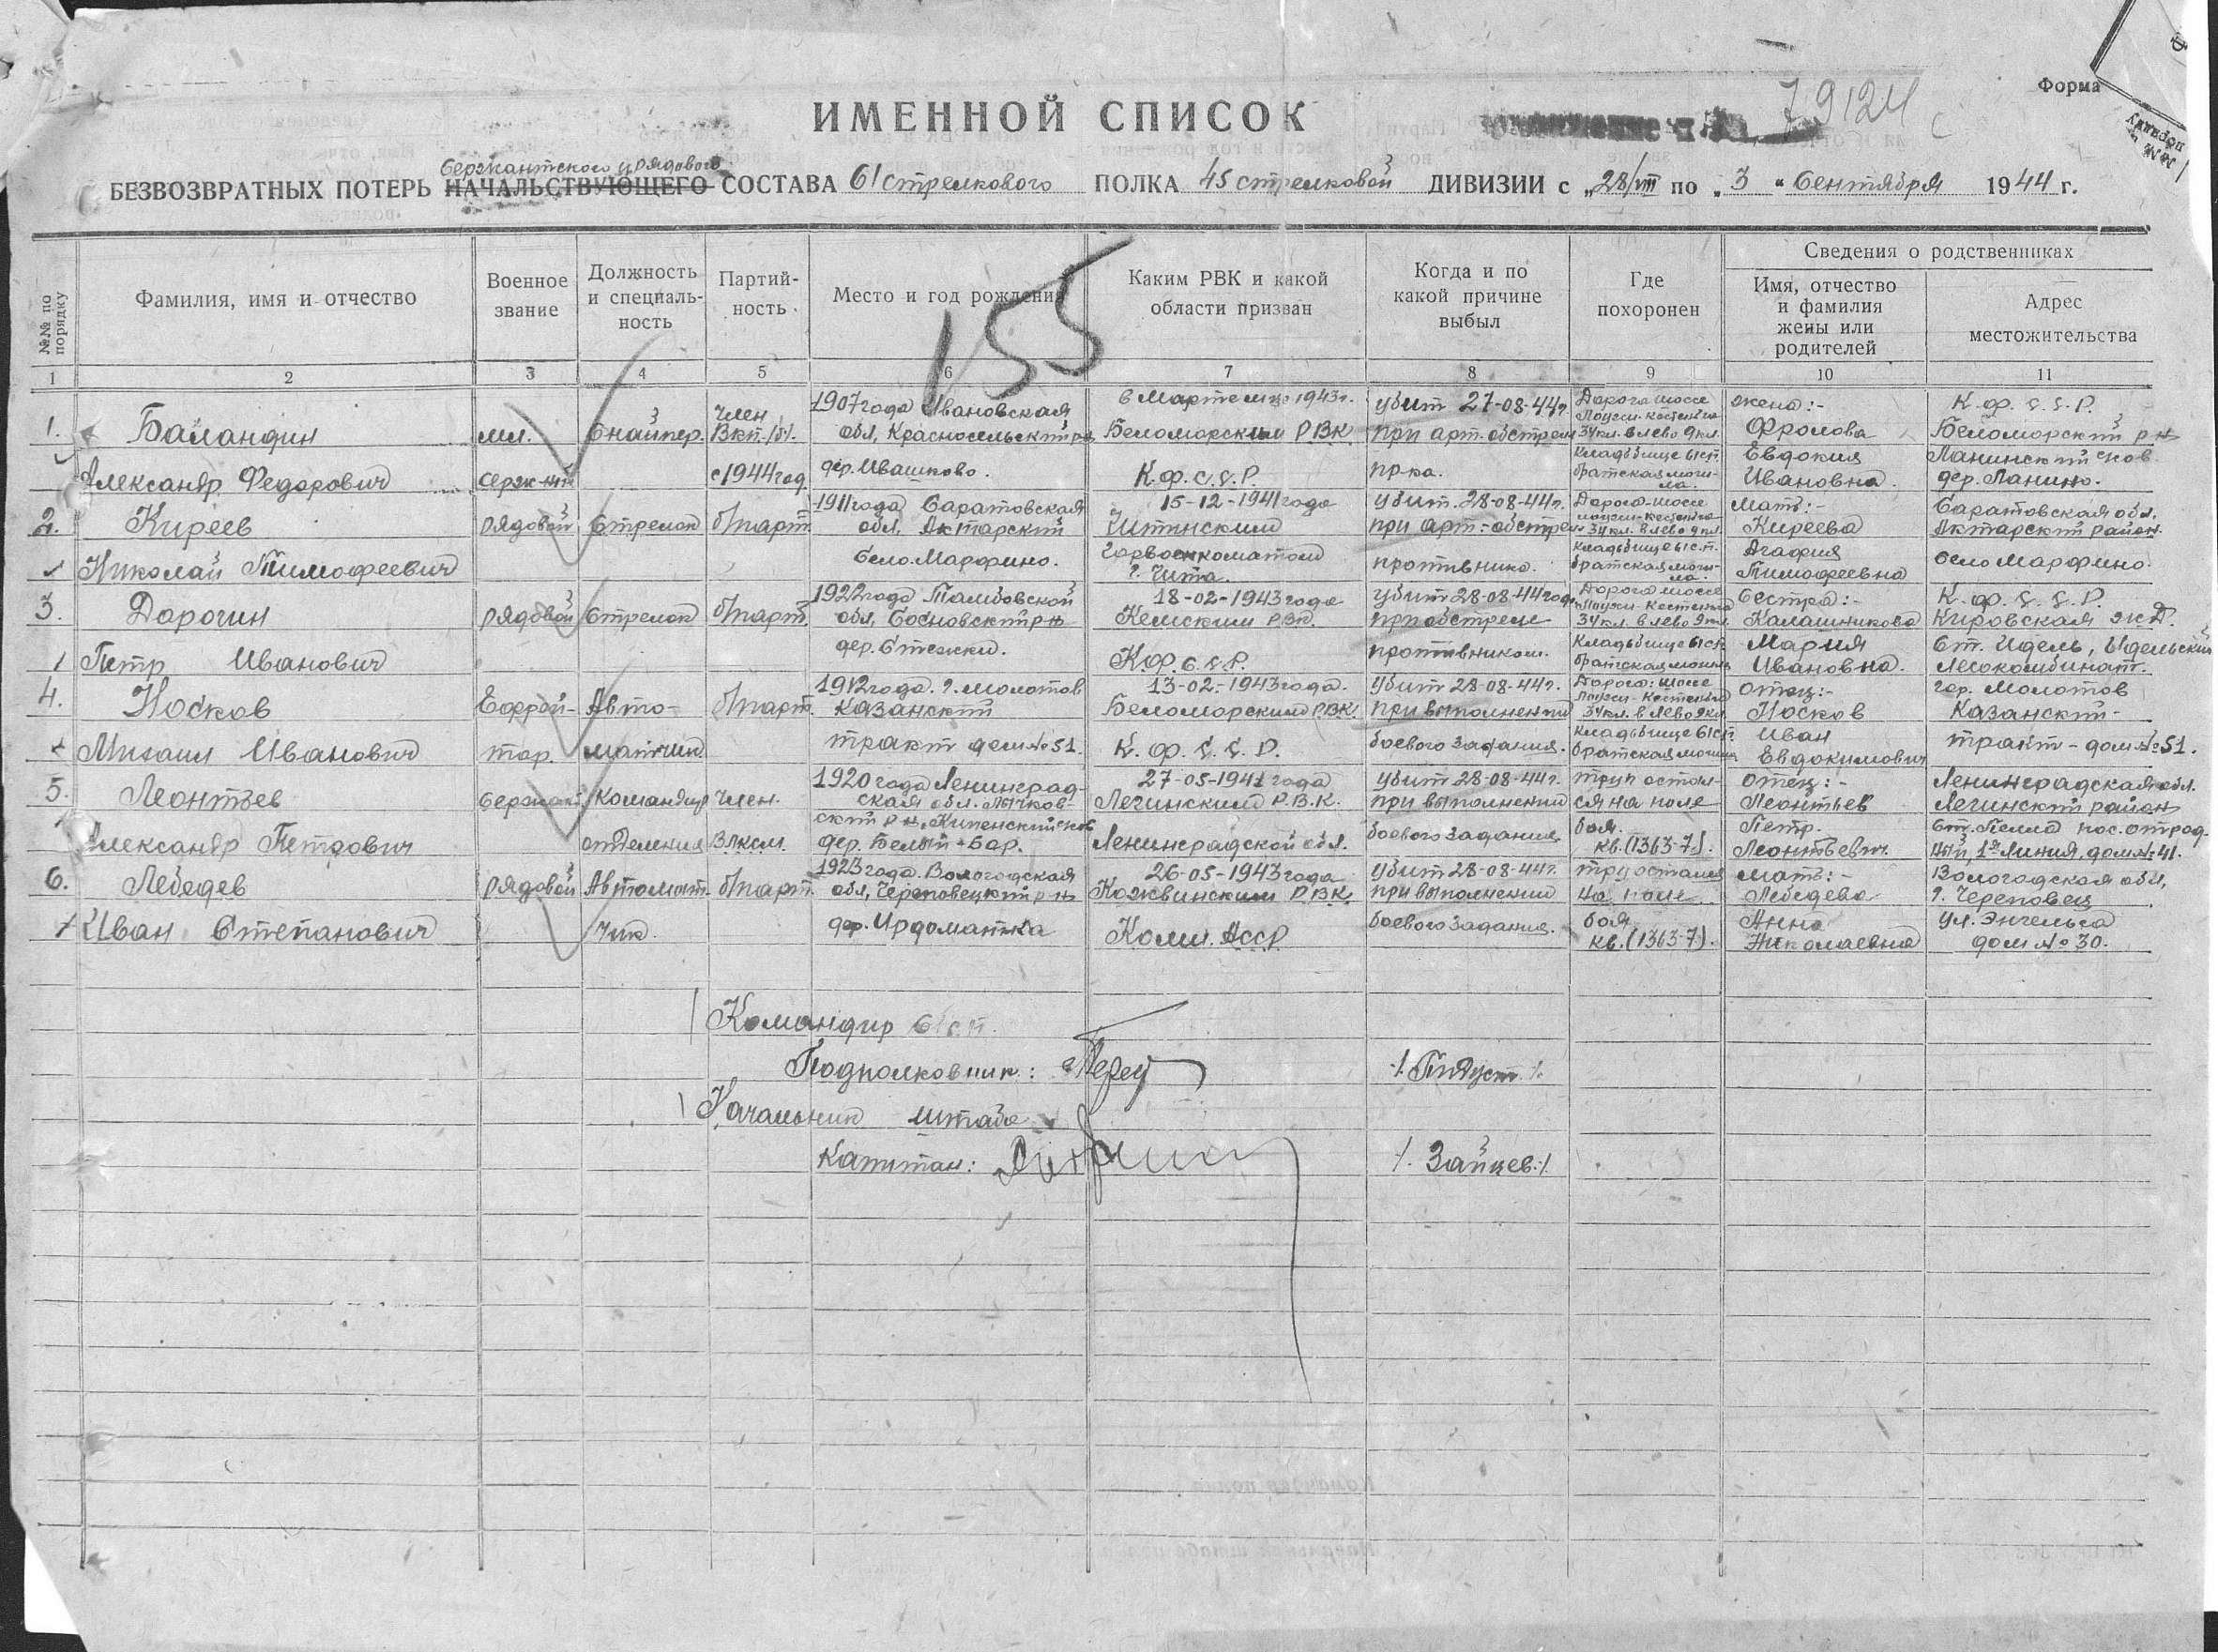 Форма
79124 с
ИМЕННОЙ СПИСОК
сержантского и рядового
БЕЗВОЗВРАТНЫХ ПОТЕРЬ НАЧАЛЬСТВУЮЩЕГО СОСТАВА 61 стрелкового ПОЛКА 45 стрелковой ДИВИЗИИ с „28/VIII по „3" Сентября 1944 г.
155
№№ по порядку
Фамилия, имя и отчество
Военное звание
Должность и специаль-
ность
Партий-
ность
Место и год рождения
Каким РВК и какой
области призван
Когда и по
какой причине
выбыл
Где
похоронен
Сведения о родственниках
Имя, отчество
и фамилия
жены или
родителей
Адрес
местожительства
1 2 3 4 5 6 7 8 9 10 11
1. Баландин
Александр Федорович
мл.
серж-нт
Снайпер.
член
Вкп/б/.
с 1944 год.
1907 года Ивановская
обл, Красносельский р-н
дер. Ивашково.
в Марте м-це 1943 г.
Беломорским РВК
К.Ф.С.С.Р.
убит 27-08-44 г.
при арт. обстреле
пр-ка.
Дорога шоссе
Лоухи-Кестеньга
34 кл. влево 9 кл.
Кладбище 61 сп.
братская моги-
ла.
жена:-
Фролова
Евдокия
Ивановна.
К.Ф.С.С.Р.
Беломорский р-н
Лапинский с/сов.
дер. Лапино.
2. Киреев
Николай Тимофеевич
рядовой
Стрелок
б/парт.
1911 года Саратовская
обл, Актарский
село Марфино.
15-12-1941 года
Читинским
Горвоенкоматом
г. Чита.
убит 28-08-44 г.
при арт. обстрел
противника.
Дорога шоссе
Лоухи-Кестеньга
34 кл. влево 9 кл.
Кладбище 61 с.п.
братская моги-
ла.
Мать:-
Киреева
Агафия
Тимофеевна
Саратовская обл.
Актарский район.
село Марфино.
3. Дорогин
Петр Иванович
рядовой
Стрелок
б/парт.
1922 года Тамбовской
обл, Сосновский р-н
дер. Стежки.
18-02-1943 года
Кемским РВК.
К.Ф.С.С.Р.
убит 28-08-44 года
при обстреле
противником.
Дорога шоссе
Лоухи-Кестеньга
34 кл. влево 9 кл.
Кладбище 61 с.п.
братская могила
Сестра:-
Калашникова
Мария
Ивановна.
К.Ф.С.С.Р.
Кировская Ж.Д.
Ст. Идель, Идельский
лесокомбинат.
4. Носков
Михаил Иванович
Ефрей-
тор.
Авто-
матчик.
б/парт.
1912 года. г. Молотов
Казанский
тракт дом № 51.
13-02-1943 года.
Беломорским РВК.
К.Ф.С.С.Р.
Убит 28-08-44 г.
при выполнении
боевого задания.
Дорога: шоссе
Лоухи-Кестеньга
34 кл. влево 9 кл.
Кладбище 61 сп.
братская могила
отец:-
Носков
Иван
Евдокимович
гор. Молотов
Казанский-
тракт-дом № 51.
5. Леонтьев
Александр Петрович
Сержант
Командир
отделения
член.
ВЛКСМ.
1920 года Ленинград-
дер. Белый-Бор.
27-05-1941 года
Ленинградской обл.
убит 28-08-44 г.
при выполнении
боевого задания
труп остал-
ся на поле
боя.
кв. (1363-7).
отец:-
Леонтьев
Петр.
Леонтьевич.
Ленинградская обл.
1я Линия, дом № 41.
6. Лебедев
Иван Степанович
рядовой
Автомат.
чик.
б/парт.
1923 года. Вологодская
обл, Череповецкий р-н
дер. Ирдоматка
26-05-1943 года
Кожвинским РВК.
Коми. АССР
убит 28-08-44 г.
при выполнении
боевого задания.
труп остался
на поле
боя
кв. (1363-7).
мать:-
Лебедева
Анна
Николаевна
Вологодская обл,
г. Череповец
ул. Энгельса
дом № 30.
Командир 61 с.п.
Подполковник:
Начальник штаба
Капитан: /. Зайцев./